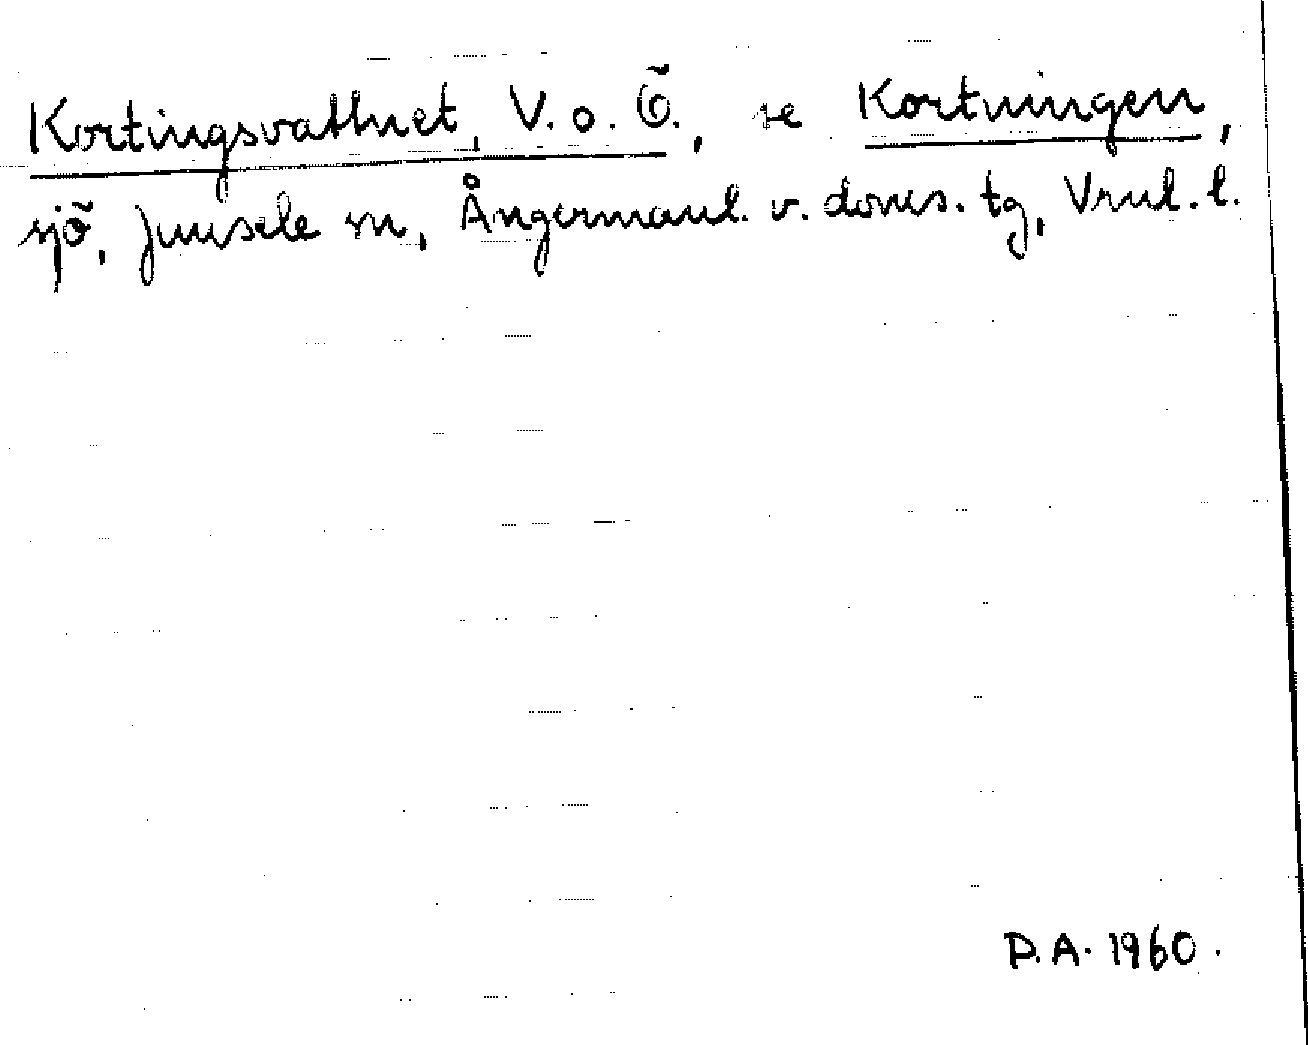 Kortingsvattnet, V. o. Ö., se Kortningen,
sjö, Junsele sn, Ångermanl. v. doms. tg, Vrnl. l.
D.A. 1960.